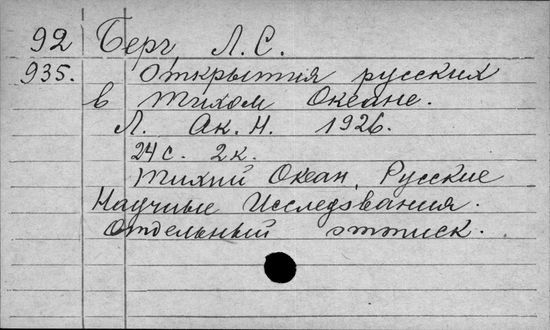 92 Берг Л. С.
935. Открытия русских
в Тихом Океане.
Л. Ак. Н. 1926.
24 с. 2 к.
Тихий Океан, Русские
Научные Исследования.
Отдельный оттиск.